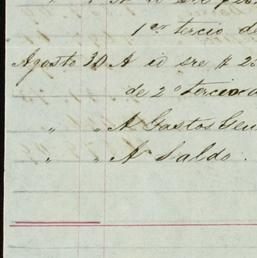 1er tercio de
Agosto 30 A id sre $ 25
de 2º tercio d
" " A Gastos Gen
" " A Saldo.